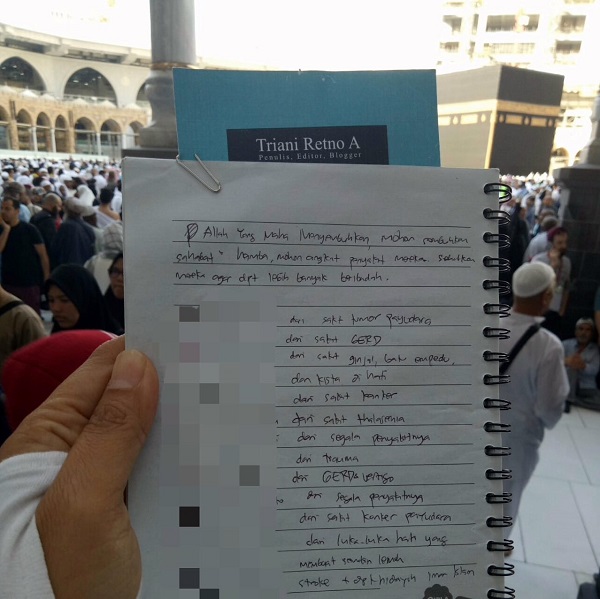 Triani Retno A
Penulis, Editor, Blogger
Allah Yang Maha Menyembuhkan, mohon sembuhkan
sahabat² hamba, mohon angkat penyakit mereka. Sehatkan
mereka agar dpt lebih banyak beribadah.
dari sakit tumor payudara
dari sakit GERD
dari sakit ginjal, batu empedu,
dan kista di hati
dari sakit kanker
dari sakit thalasemia
dari segala penyakitnya
dari trauma
dari GERD & vertigo
dari segala penyakitnya
dari sakit kanker payudara
dari luka-luka hati yang
membuat lemah
stroke + dpt hidayah iman Islam